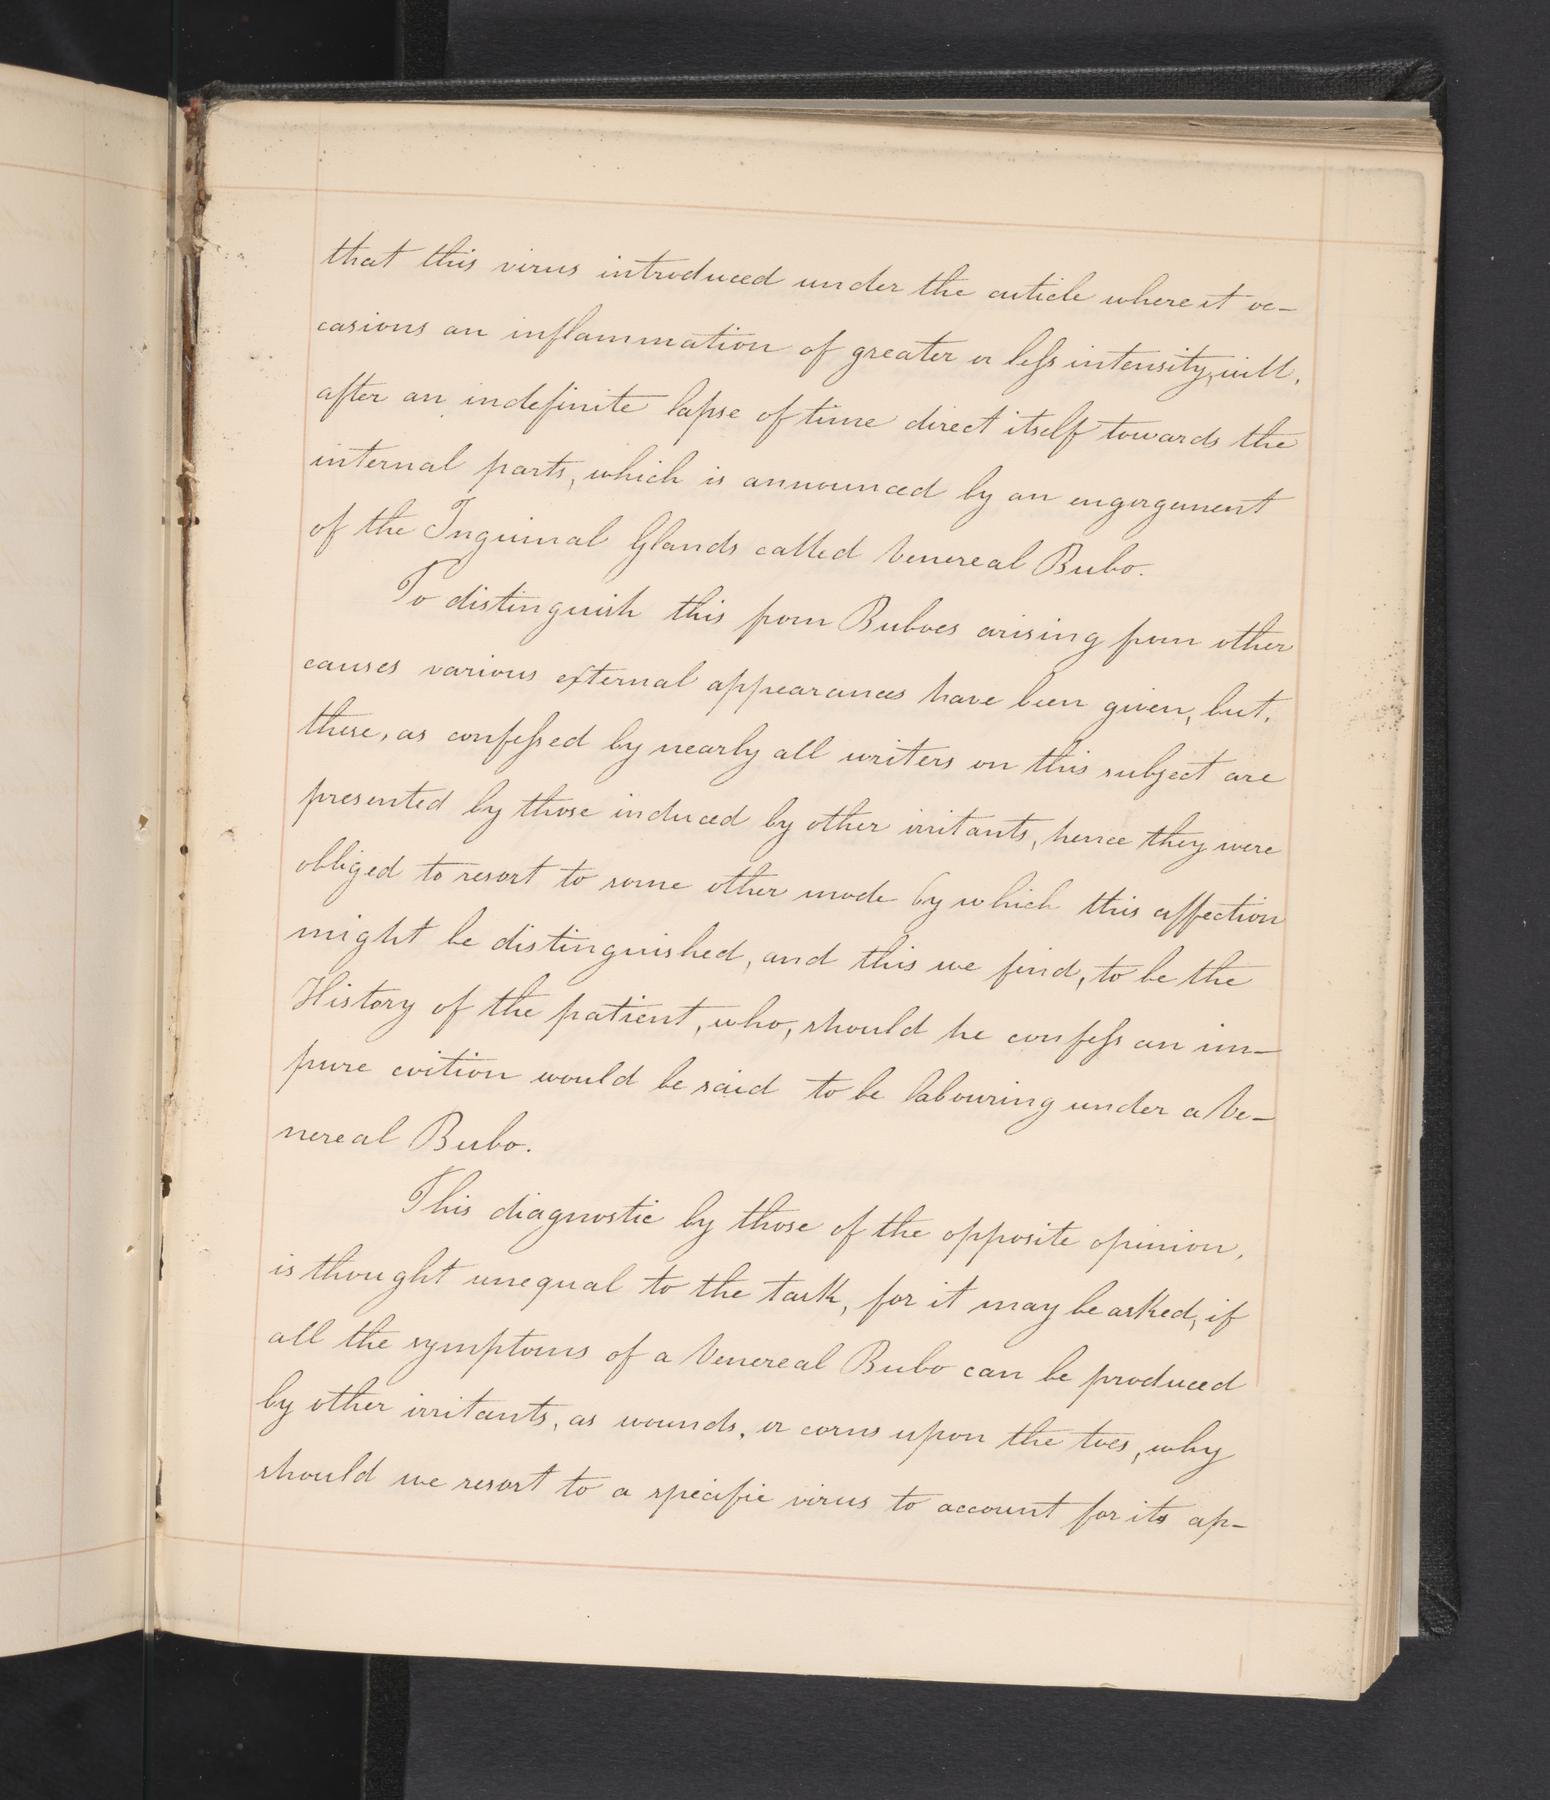 that this virus introduced under the cuticle where it oc-
casions an inflammation of greater or less intensity, will,
after an indefinite lapse of time direct itself towards the
internal parts, which is announced by an engorgement
of the Inguinal Glands called Venereal Bubo.
To distinguish this from Buboes arising from other
causes various external appearances have been given, but,
these, as confessed by nearly all writers on this subject are
presented by those induced by other irritants, hence they were
obliged to resort to some other mode by which this affection
might be distinguished, and this we find, to be the
History of the patient, who, should he confess an im-
pure coition would be said to be labouring under a Ve-
nereal Bubo.
This diagnostic by those of the opposite opinion,
is thought unequal to the task, for it may be asked, if
all the symptoms of a Venereal Bubo can be produced
by other irritants, as wounds, or corns upon the toes, why
should we resort to a specific virus to account for its ap-